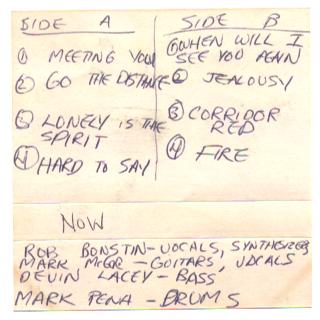 SIDE A
① MEETING YOU
② GO THE DISTANCE
③ LONELY IS THE
SPIRIT
④ HARD TO SAY
SIDE B
① WHEN WILL I
SEE YOU AGAIN
② JEALOUSY
③ CORRIDOR
RED
④ FIRE
NOW
ROB BONSTIN-VOCALS, SYNTHESIZER
MARK - GUITARS, VOCALS
DEVIN LACEY - BASS
MARK PENA - DRUMS